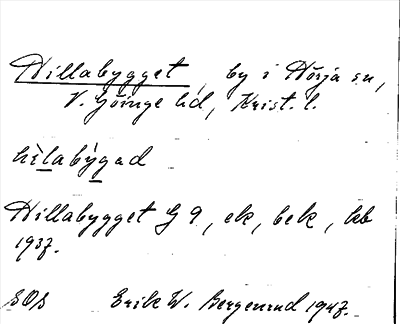 Hillabygget, by i Hörja sn,
V. Göinge hd, Krist. l.
hìlabỳgad
Hillabygget G 9, ek, bek, kb
1937.
SOS Erik W. Bergenrud 1947.